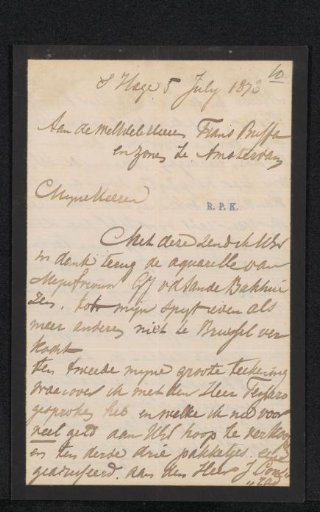 10
s' Hage 5 July 1873
Aan de WelEdelHeeren Frans Buffa
en zonen te Amsterdam
Myne Heeren
R.P.K.
Met deze zend ik UEd
in dank terug de aquarelle van
Mejufvrouw GJ vd Sande Bakhui
zen. tot myn spyt even als
meer anderen niet te Brussel ver
kocht
Ten tweede myne groote teekening
waarover ik met den Heer
gesproken heb en welke ik nu voor
veel geld aan UEd hoop te verkoopen
en ten derde drie pakketjes.
geadresseerd. aan den Heer J